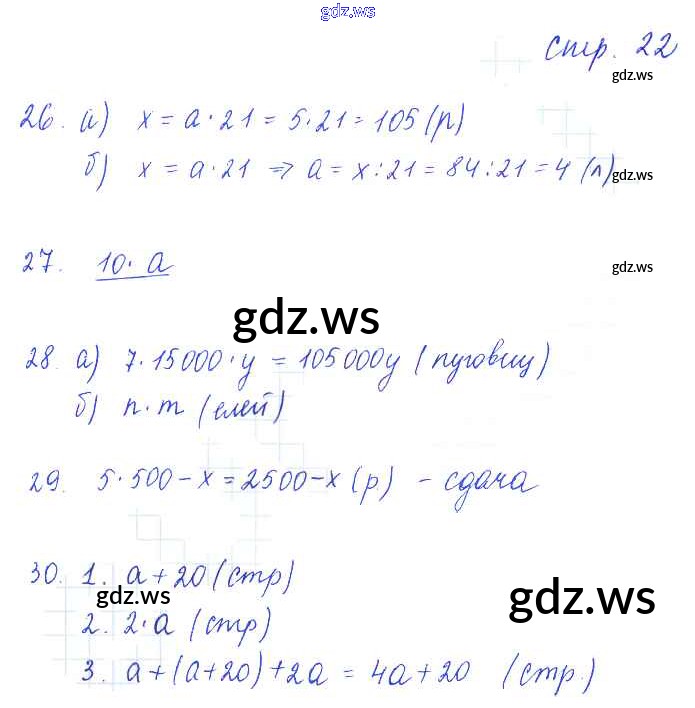 gdz.ws
стр. 22
gdz.ws
26. а) x = a · 21 = 5 · 21 = 105 (р)
б) x = a · 21 => a = x : 21 = 84 : 21 = 4 (л)
gdz.ws
27. 10 · a
gdz.ws
gdz.ws
28. а) 7 · 15000 · y = 105000y (пуговиц)
б) n · m (елей)
29. 5 · 500 - x = 2500 - x (р) - сдача
30. 1. a + 20 (стр)
gdz.ws
gdz.ws
2. 2 · a (стр)
3. a + (a + 20) + 2a = 4a + 20 (стр.)